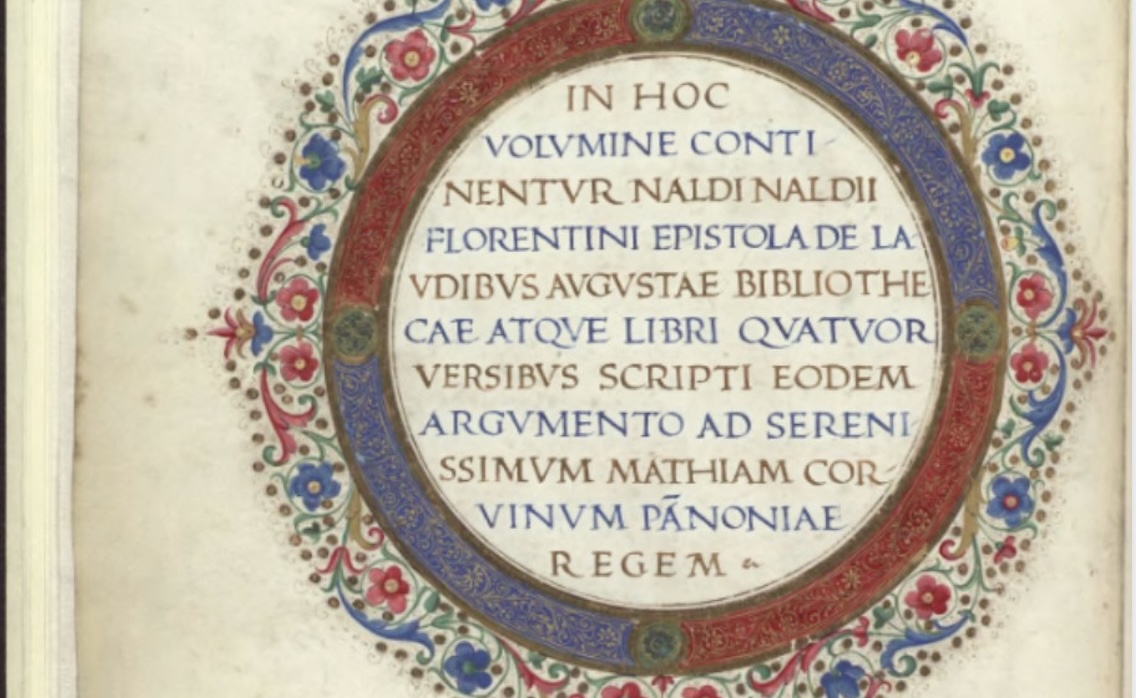 IN HOC
VOLVMINE CONTI-
NENTVR NALDI NALDII
FLORENTINI EPISTOLA DE LA-
VDIBVS AVGVSTAE BIBLIOTHE
CAE ATQVE LIBRI QVATVOR
VERSIBVS SCRIPTI EODEM
ARGVMENTO AD SERENI-
SSIMVM MATHIAM COR-
VINVM PÃNONIAE
REGEM